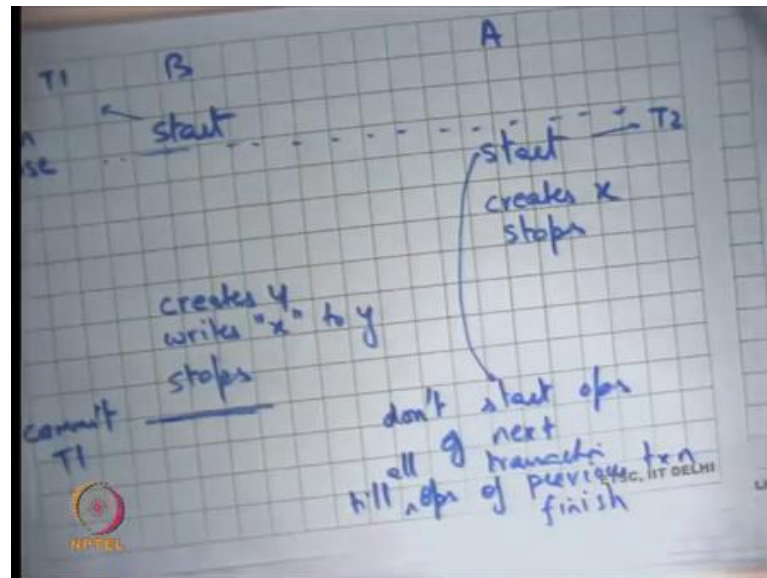 T1 B A
start
start T2
creates x
stops
creates y
writes "x" to y
stops
commit
T1
don't start ops
of next
transactn
till all ops of previous txn
finish
ETSC, IIT DELHI
NPTEL